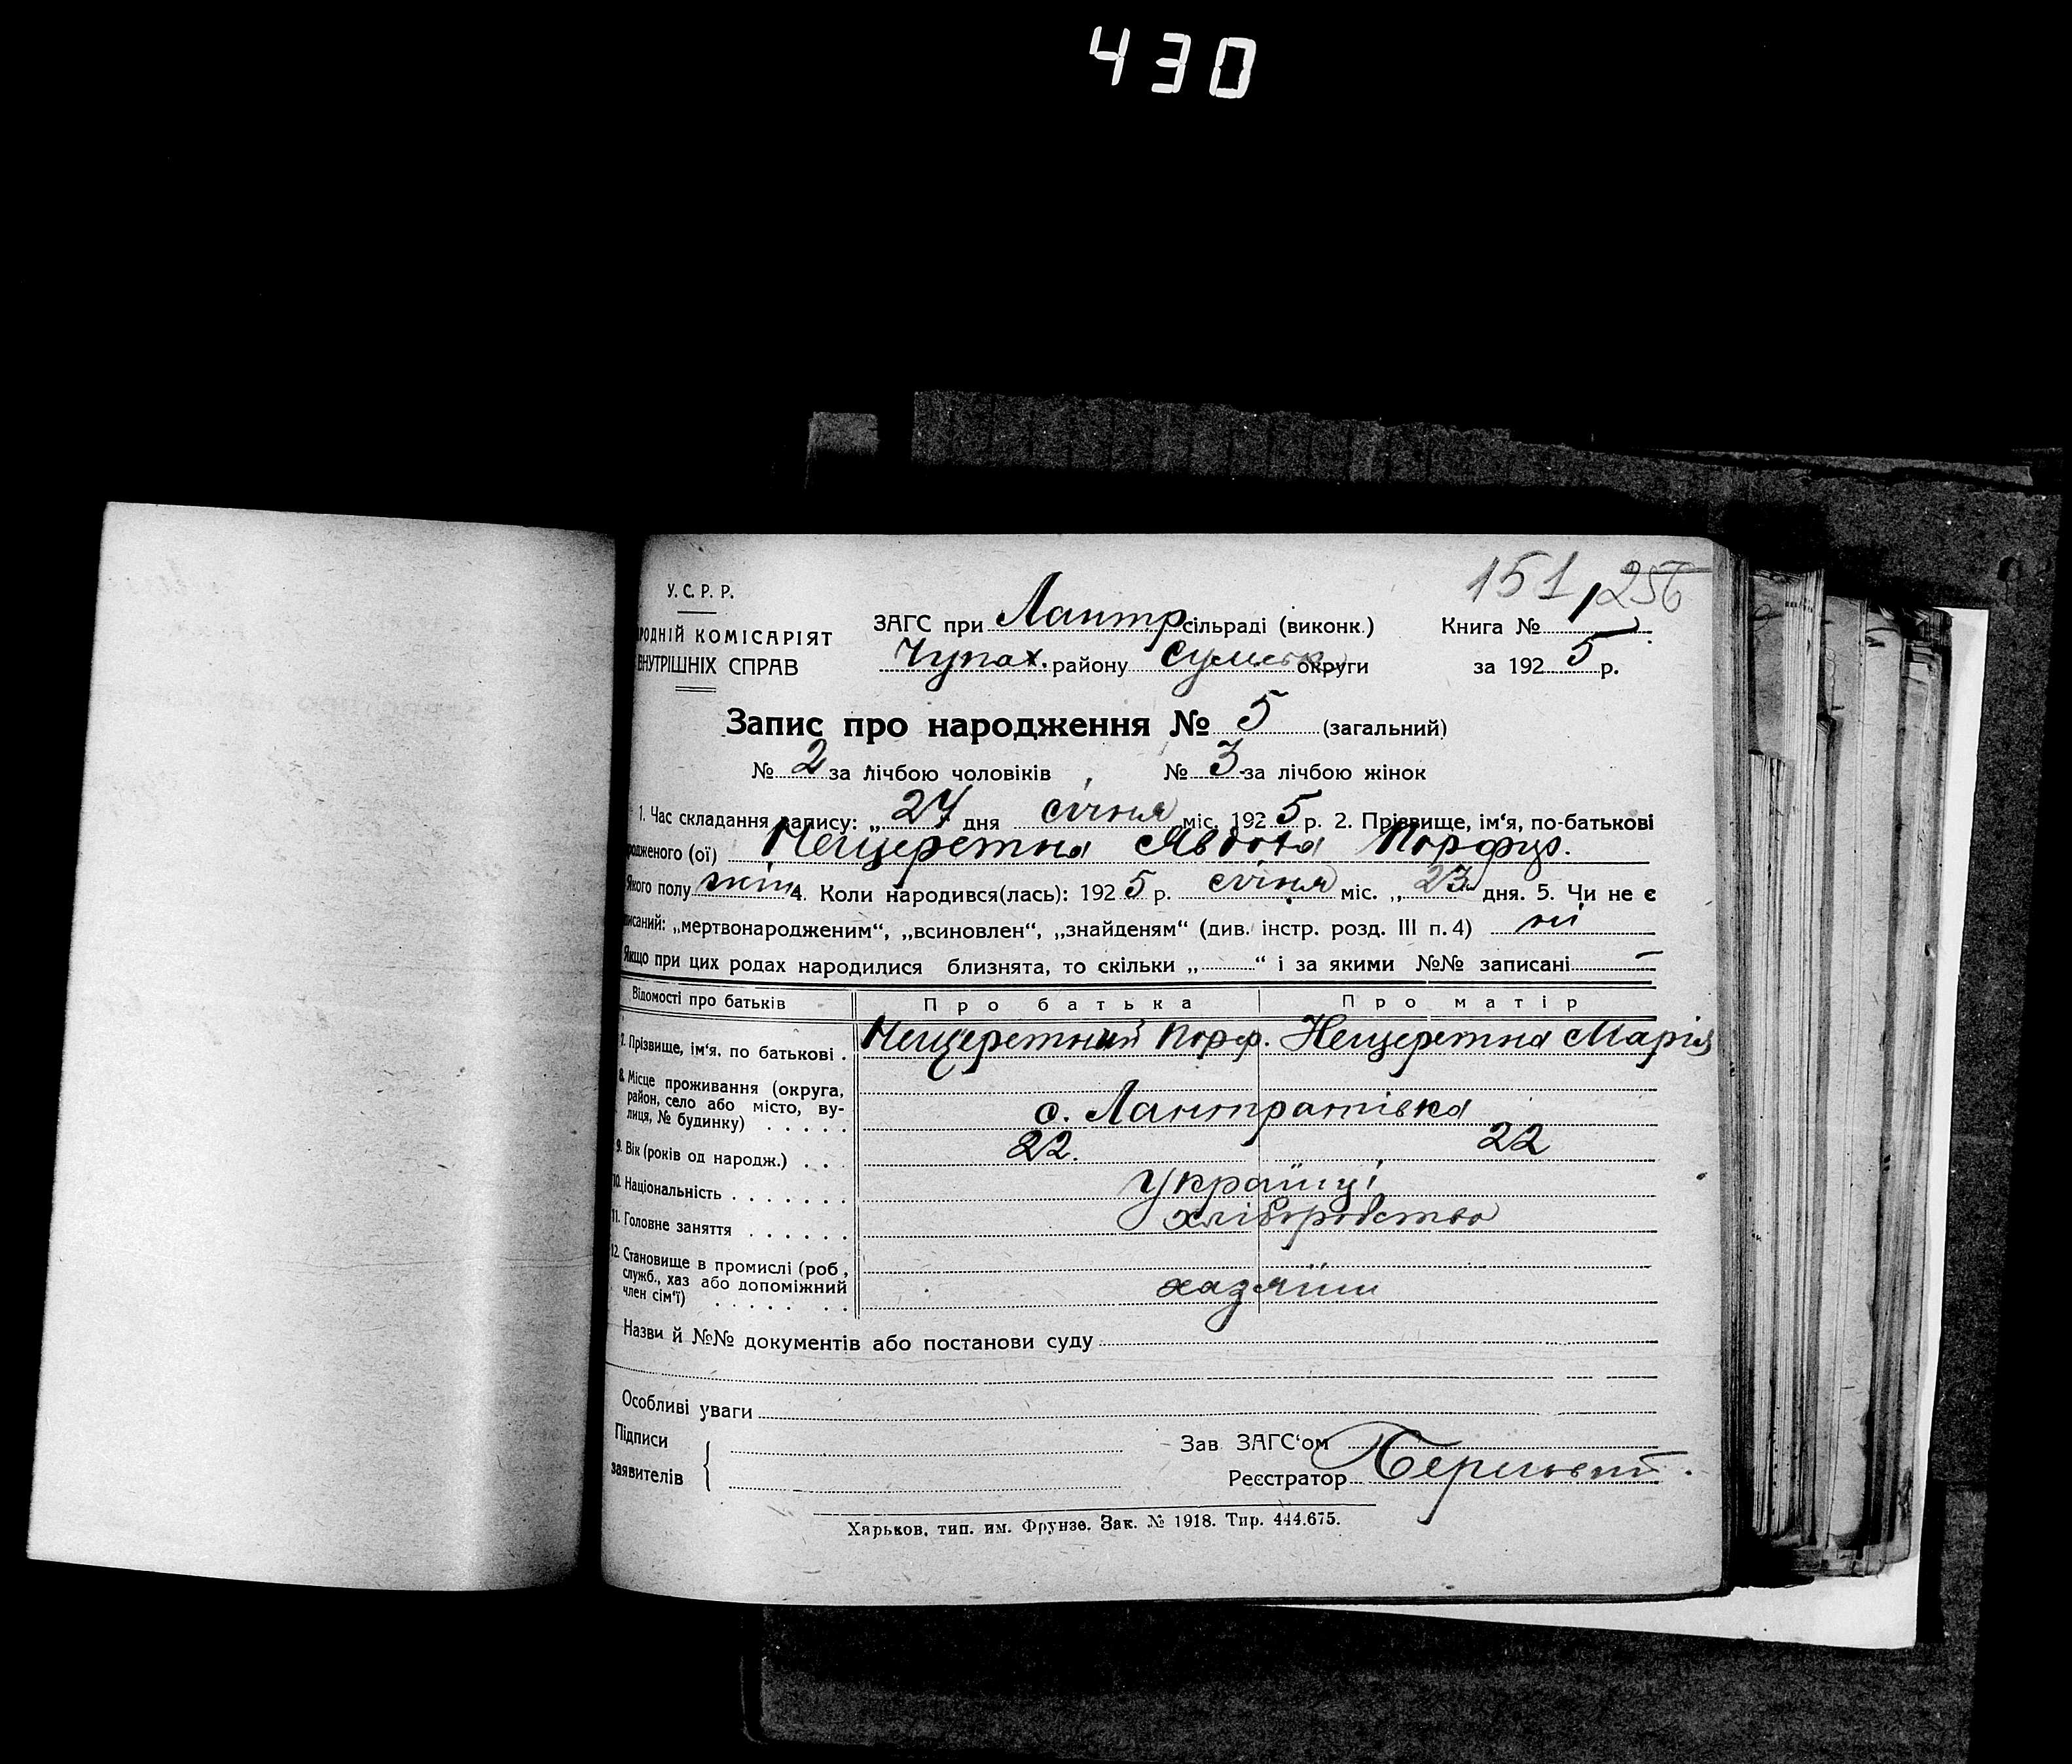 430
151 256
У. С. Р. Р.
РОДНІЙ КОМІСАРІЯТ
ВНУТРІШНІХ СПРАВ
ЗАГС при Лантр сільраді (виконк.) Книга № 1
Чупах. району Сумськ округи за 1925 р.
Запис про народження № 5 (загальний)
№ 2 за лічбою чоловіків № 3 за лічбою жінок
1. Час складання запису: „ 27 дня січня міс. 1925 р. 2. Прізвище, ім‘я, по-батькові
родженого (ої) Нещеретна Явдоха Порфир.
Якого полу жін 4. Коли народився(лась): 1925 р. січня міс. „ 23 дня. 5. Чи не є
писаний: „мертвонародженим“, „всиновлен“, „знайденям“ (див. інстр. розд. III п. 4) ні
Якщо при цих родах народилися близнята, то скільки „ “ і за якими №№ записані —
Відомості про батьків Про батька Про матір
7. Прізвище, ім‘я, по батькові . Нещеретний Порф. Нещеретна Марія
8. Місце проживання (округа,
район, село або місто, ву-
лиця, № будинку) . . . . . с. Лантратівка
9. Вік (років од народж.) . . . 22. 22
10. Національність . . . . . . . Українці
11. Головне заняття . . . . . . хліборобство
12. Становище в промислі (роб ,
служб., хаз або допоміжний
член сім‘ї) . . . . . . . хазяїни
Назви й №№ документів або постанови суду
Особливі уваги
Підписи
заявителів
Зав ЗАГС‘ом
Реєстратор
Харьков, тип. им. Фрунзе. Зак. № 1918. Тир. 444.675.